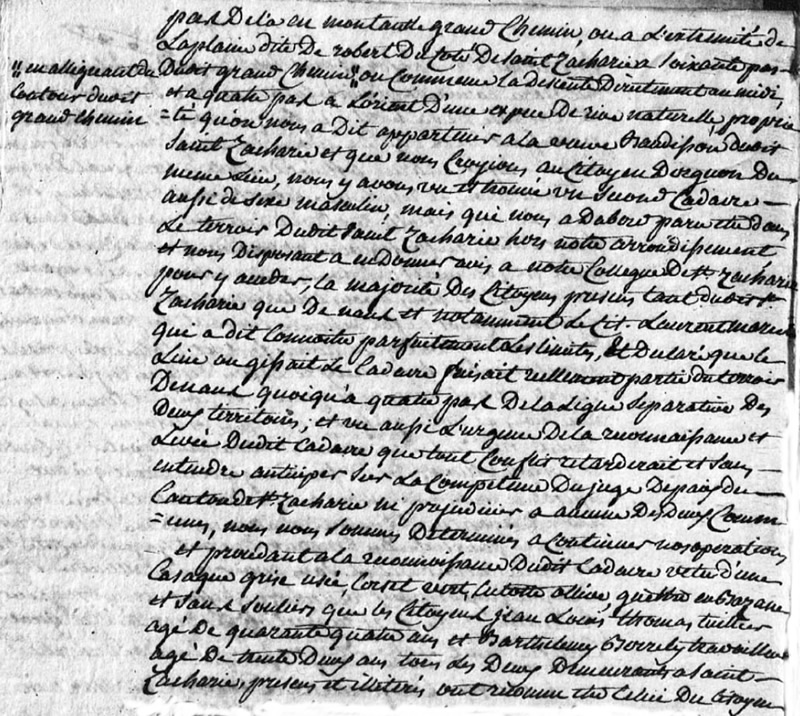 par De la en montant le grand Chemin, ou a L'extremité de
La plaine dite De robert Du Coté De Saint Zacharie a Soixante pas
Dudit grand Chemin" ou Commence la descente Directement au midi,
"en allignant du
Contour dudit
grand chemin
et a quatre pas a L'orient D'une espece De rive naturelle, proprie
=té qu'on nous a Dit appartenir a la veuve dudit
Saint Zacharie et que nous Croyions au Citoyen Du
meme Lieu, nous y avons vu et trouvé un Second Cadavre
aussi de Sexe masculin, mais qui nous a Dabord paru etre dans
Le terroir Dudit Saint Zacharie hors notre arrondissement,
et nous Disposant a en Donner avis a notre Collegue De St. Zacharie
pour y acceder, la majorité Des Citoyens presens tant dudit St.
Zacharie que De nans et notamment Le Cit. Laurent
qui a dit Connoitre parfaitement Les limites, et Declaré que le
Lieu ou gissait Le Cadavre faisait reellement partie du terroir
De nans quoiqu'a quatre pas De la Ligne Separative Des
Deux territoires; et vu aussi L'urgence De la reconnaissance et
Levée Dudit Cadavre que tout Conflit retarderait et Sans
entendre anticiper Sur La Competence Du juge De paix du
Canton de St. Zacharie ni prejudicier a aucune Des Deux Comm
=unes, nous nous Sommes Determinés a Continuer nos operations
et procedant a la reconnoissance Dudit Cadavre vetu d'une
Casaque grise usée, Corset vert, Culotte guettre en
et Sans Souliers que les Citoyens jean Louis thomas tuilier
agé De quarante quatre ans et Barthelemy travailleur
agé De trente Deux ans tous Les Deux Demeurants a Saint
Zacharie, presens et illiterés ont reconnu etre Celui Du Citoyen